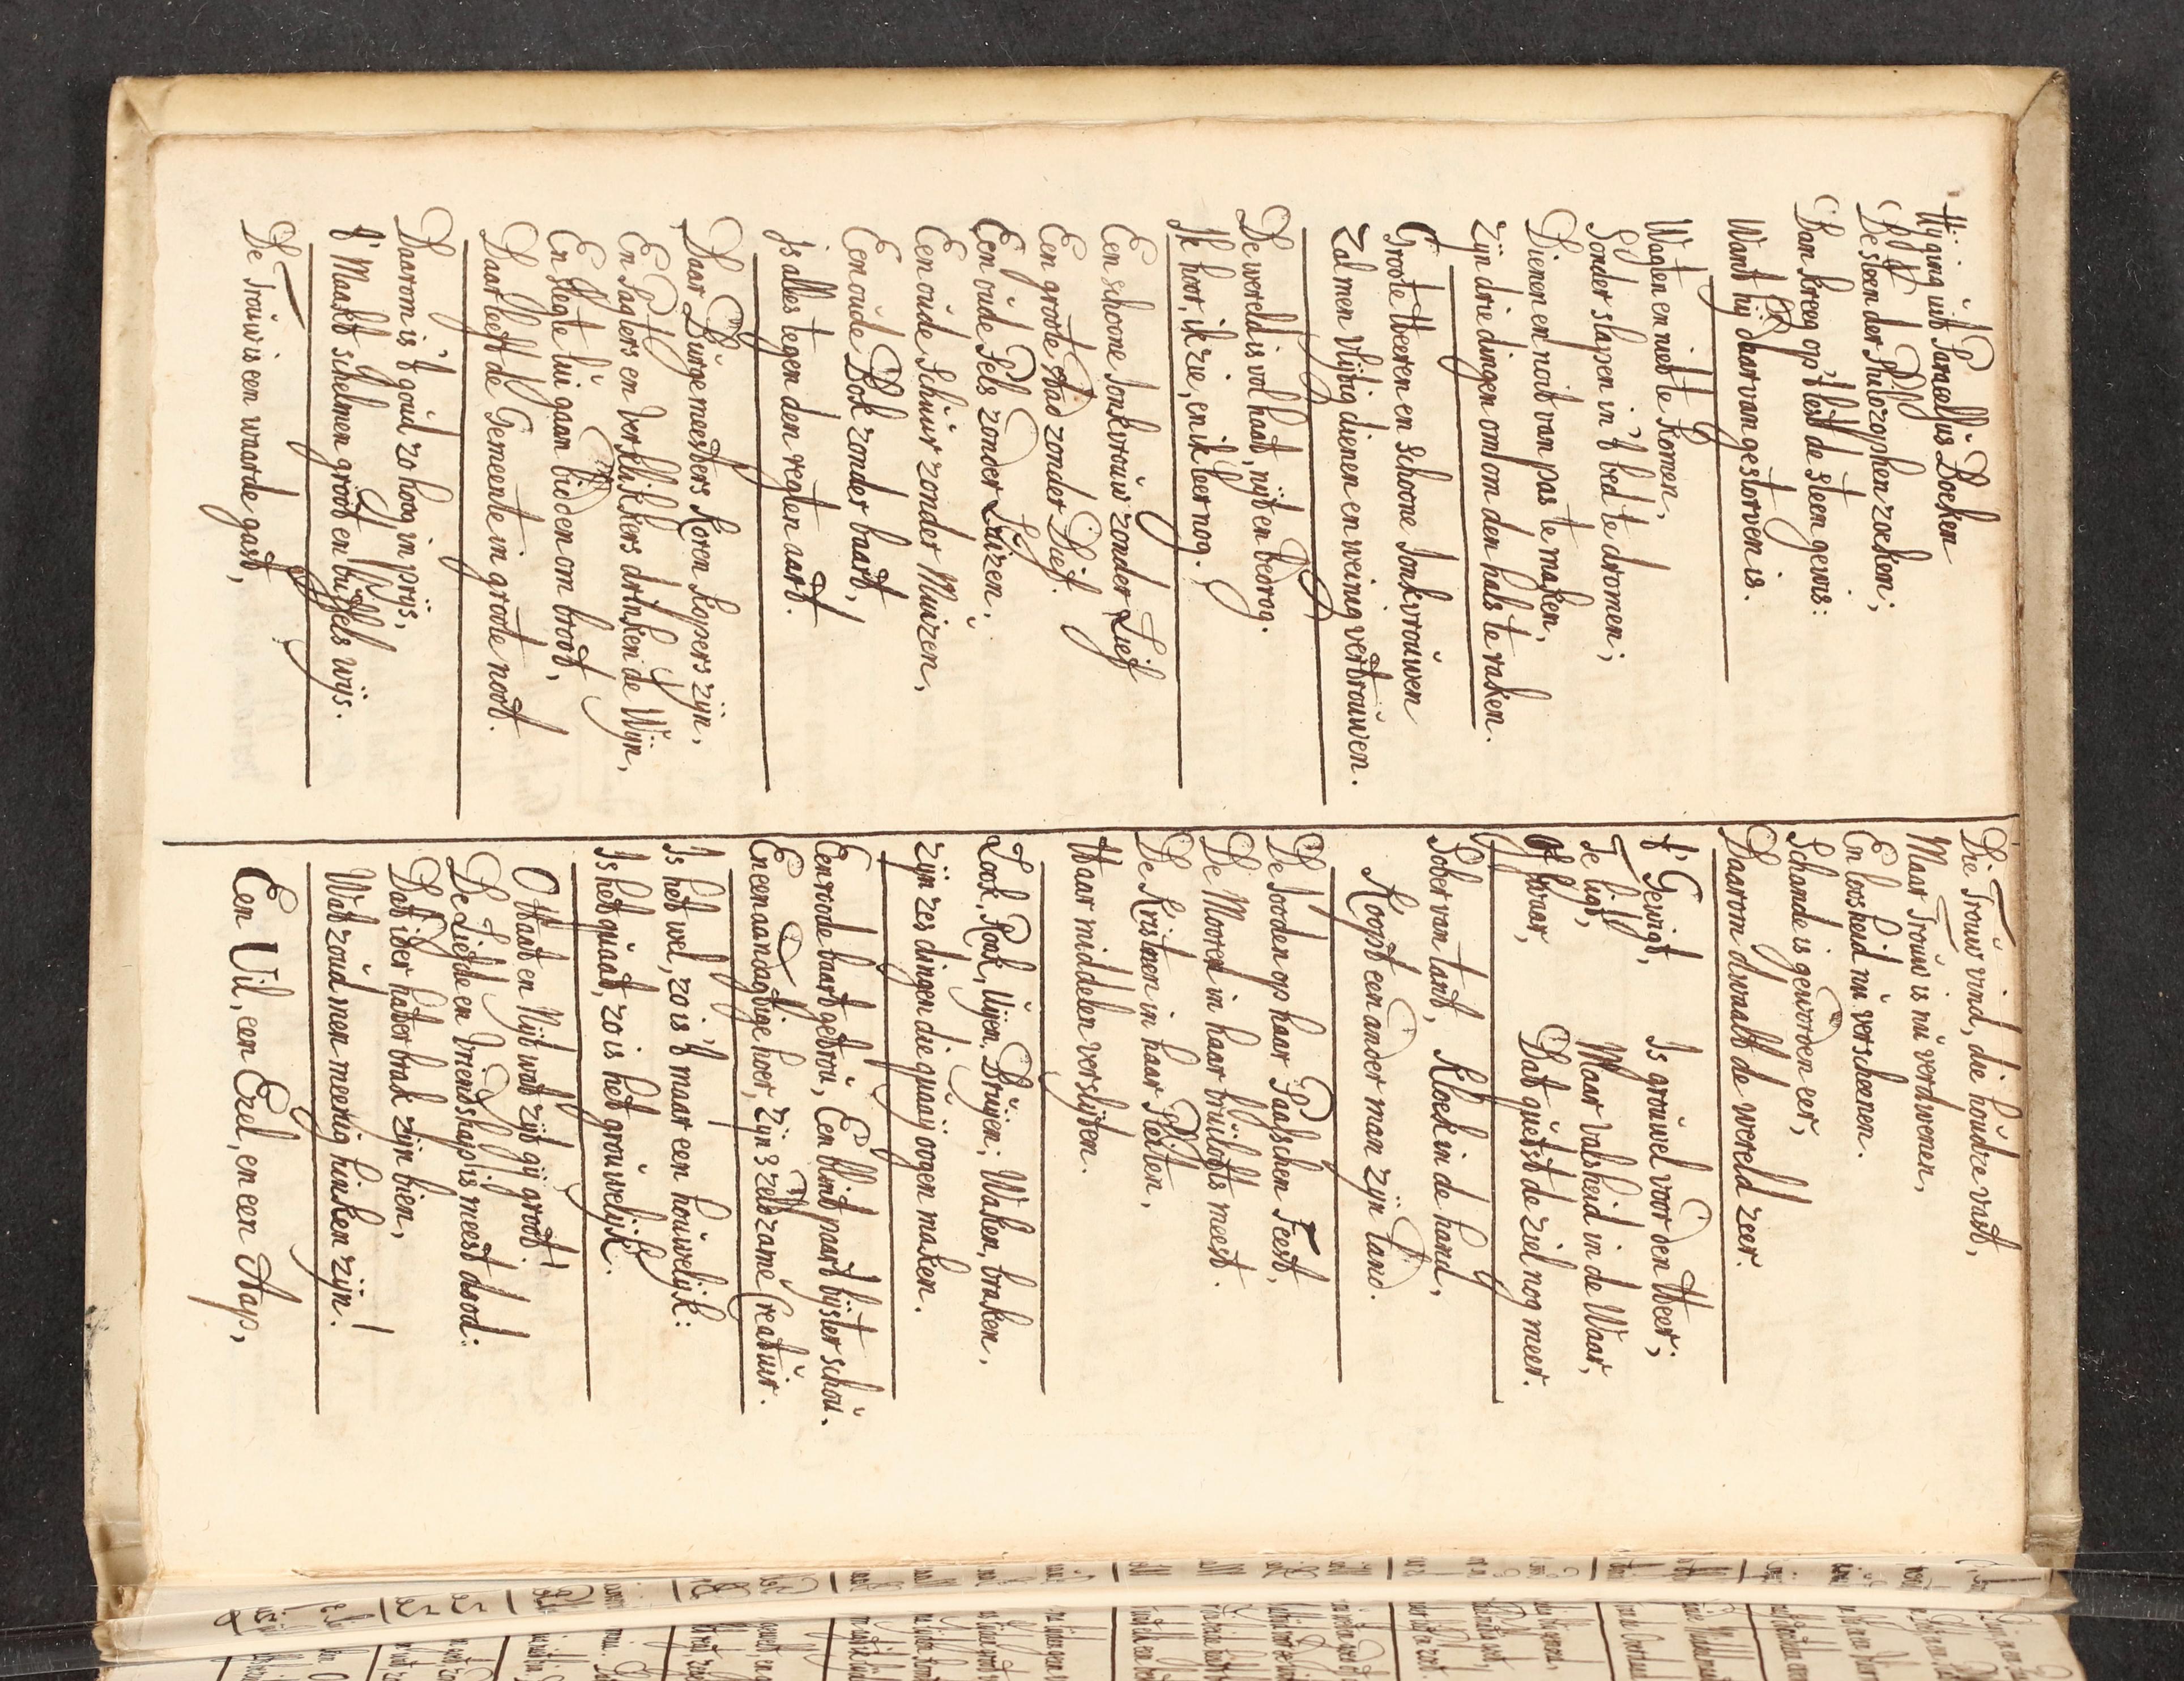 Hij ging uit Paracelsus Boeken
De steen der Philozophen zoeken;
Dan kreeg op 't lest de steen gewis:
Want hij daar van gestorven is.
Wagten en niet te komen,
Sonder slapen in 't bed te dromen;
Dienen en noit van pas te maken,
zijn drie dingen om om den hals te raken.
Groote Heeren en schoone Jonkvrouwen
zal men vlijtig dienen en weinig vertrouwen.
De wereld is vol haat, nijt en bedrog.
Ik hoor, ik zie, en ik leer nog.
Een schoone Jonkvrouw zonder Lief
Een groote Stad zonder Dief.
Een oude Pels zonder Luizen.
Een oude Schuur zonder Muizen,
Een oude Bok zonder baart,
Is alles tegen den regten aart.
Daar Burgemeesters Koren kopers zijn,
En Pagters en Verklikkers drinken de Wijn,
En slegte lui gaan bidden om broot,
Daar leeft de Gemeente in groote noot.
Daarom is 't goud zo hoog in prijs,
't Maakt schelmen groot en buffels wijs.
De Trouw is een waarde gast,
Die Trouw vind, die houdze vast,
Maar Trouw is nu verdwenen,
En loosheid nu verscheenen.
Schande is geworden eer,
Daarom dwaalt de wereld zeer.
't Gewigt, Is grouwel voor den Heer;
Te ligt, Maar valsheid in de Waar,
Of swaar, Dat quetst de ziel nog meer.
Sober van tant, Kloek in de hand,
Koopt een ander man zijn land.
De Jooden op haar Paasschen Feest,
De Mooren in haar bruilofts meest.
De Kristnen in haar Pleiten,
Haar middelen verslijten.
Look, Rook, Uijen, Bruijen; Waken, braken,
zijn zes dingen die quaaij oogen maken.
Een roode baart getrou, Een blint paart bijster schou.
En een aandagtige hoer, zijn 3 zeldzame Creatuir.
Is het wel, zo is 't maar een houwelijk:
Is het quaat, zo is het grouwelijk.
O Haat en Nijt wat zijt gij groot!
De Liefde en vriendschap is meest dood:
Dat ider hater brak zijn bien,
Wat zoud men meenig hinken zijn!
Een Uil, een Ezel, en een Aap,